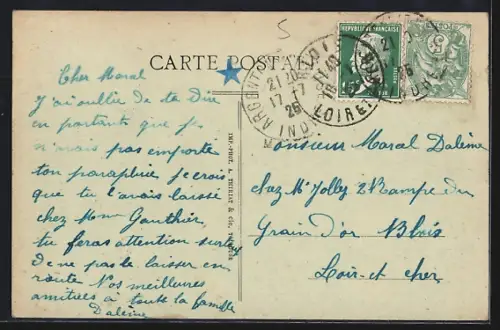 5
CARTE POSTALE
Cher Maral
J'ai oublie de ta Dire
en partante que je
n'avais pas emporte
ton parapluie je crois
que tu l'avais laissé
chez Mme Gauthier,
tu feras attention
de ne pas le laisser en
route Nos meilleures
amitiés à toute la famille
Dalème
IMP.-PHOT. A. THIRIAT & Cie, TOULOUSE
ARGENTON
21 30
17-7
25
INDRE
LOIRET
REPUBLIQUE FRANÇAISE
5
Monsieur Maral Dalème
chez Mr Jolley 2 Rampe du
Grain d'or Blois
Loir-et cher